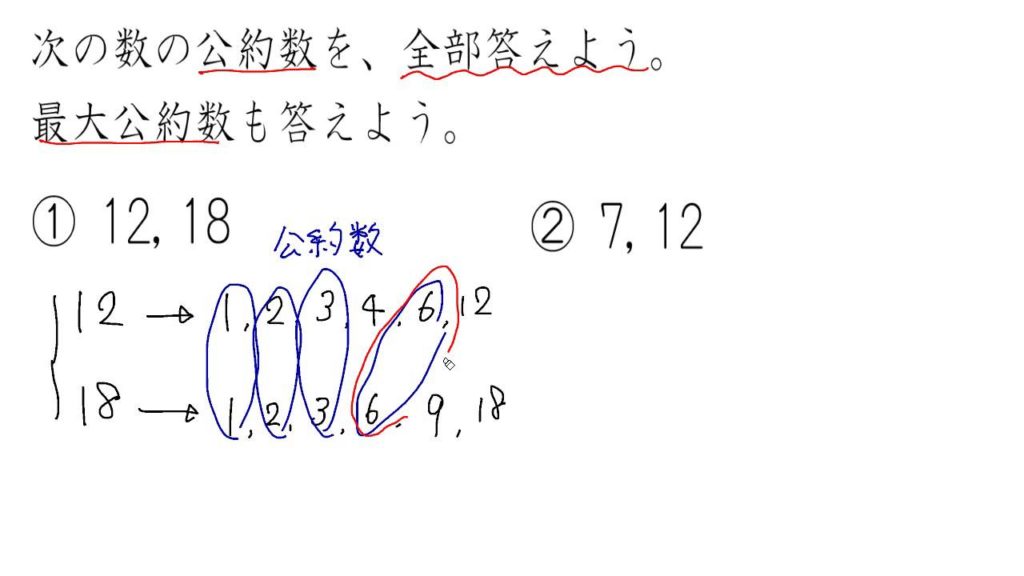 次の数の公約数を、全部答えよう。
最大公約数も答えよう。
① 12, 18
公約数
12 → 1, 2, 3, 4, 6, 12
18 → 1, 2, 3, 6, 9, 18
② 7, 12